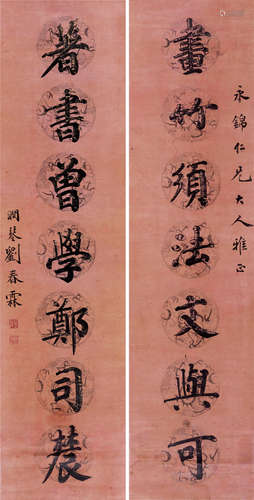 永錦仁兄大人雅正
畫竹須法文與可
著書曾學鄭司農
潤琴劉春霖